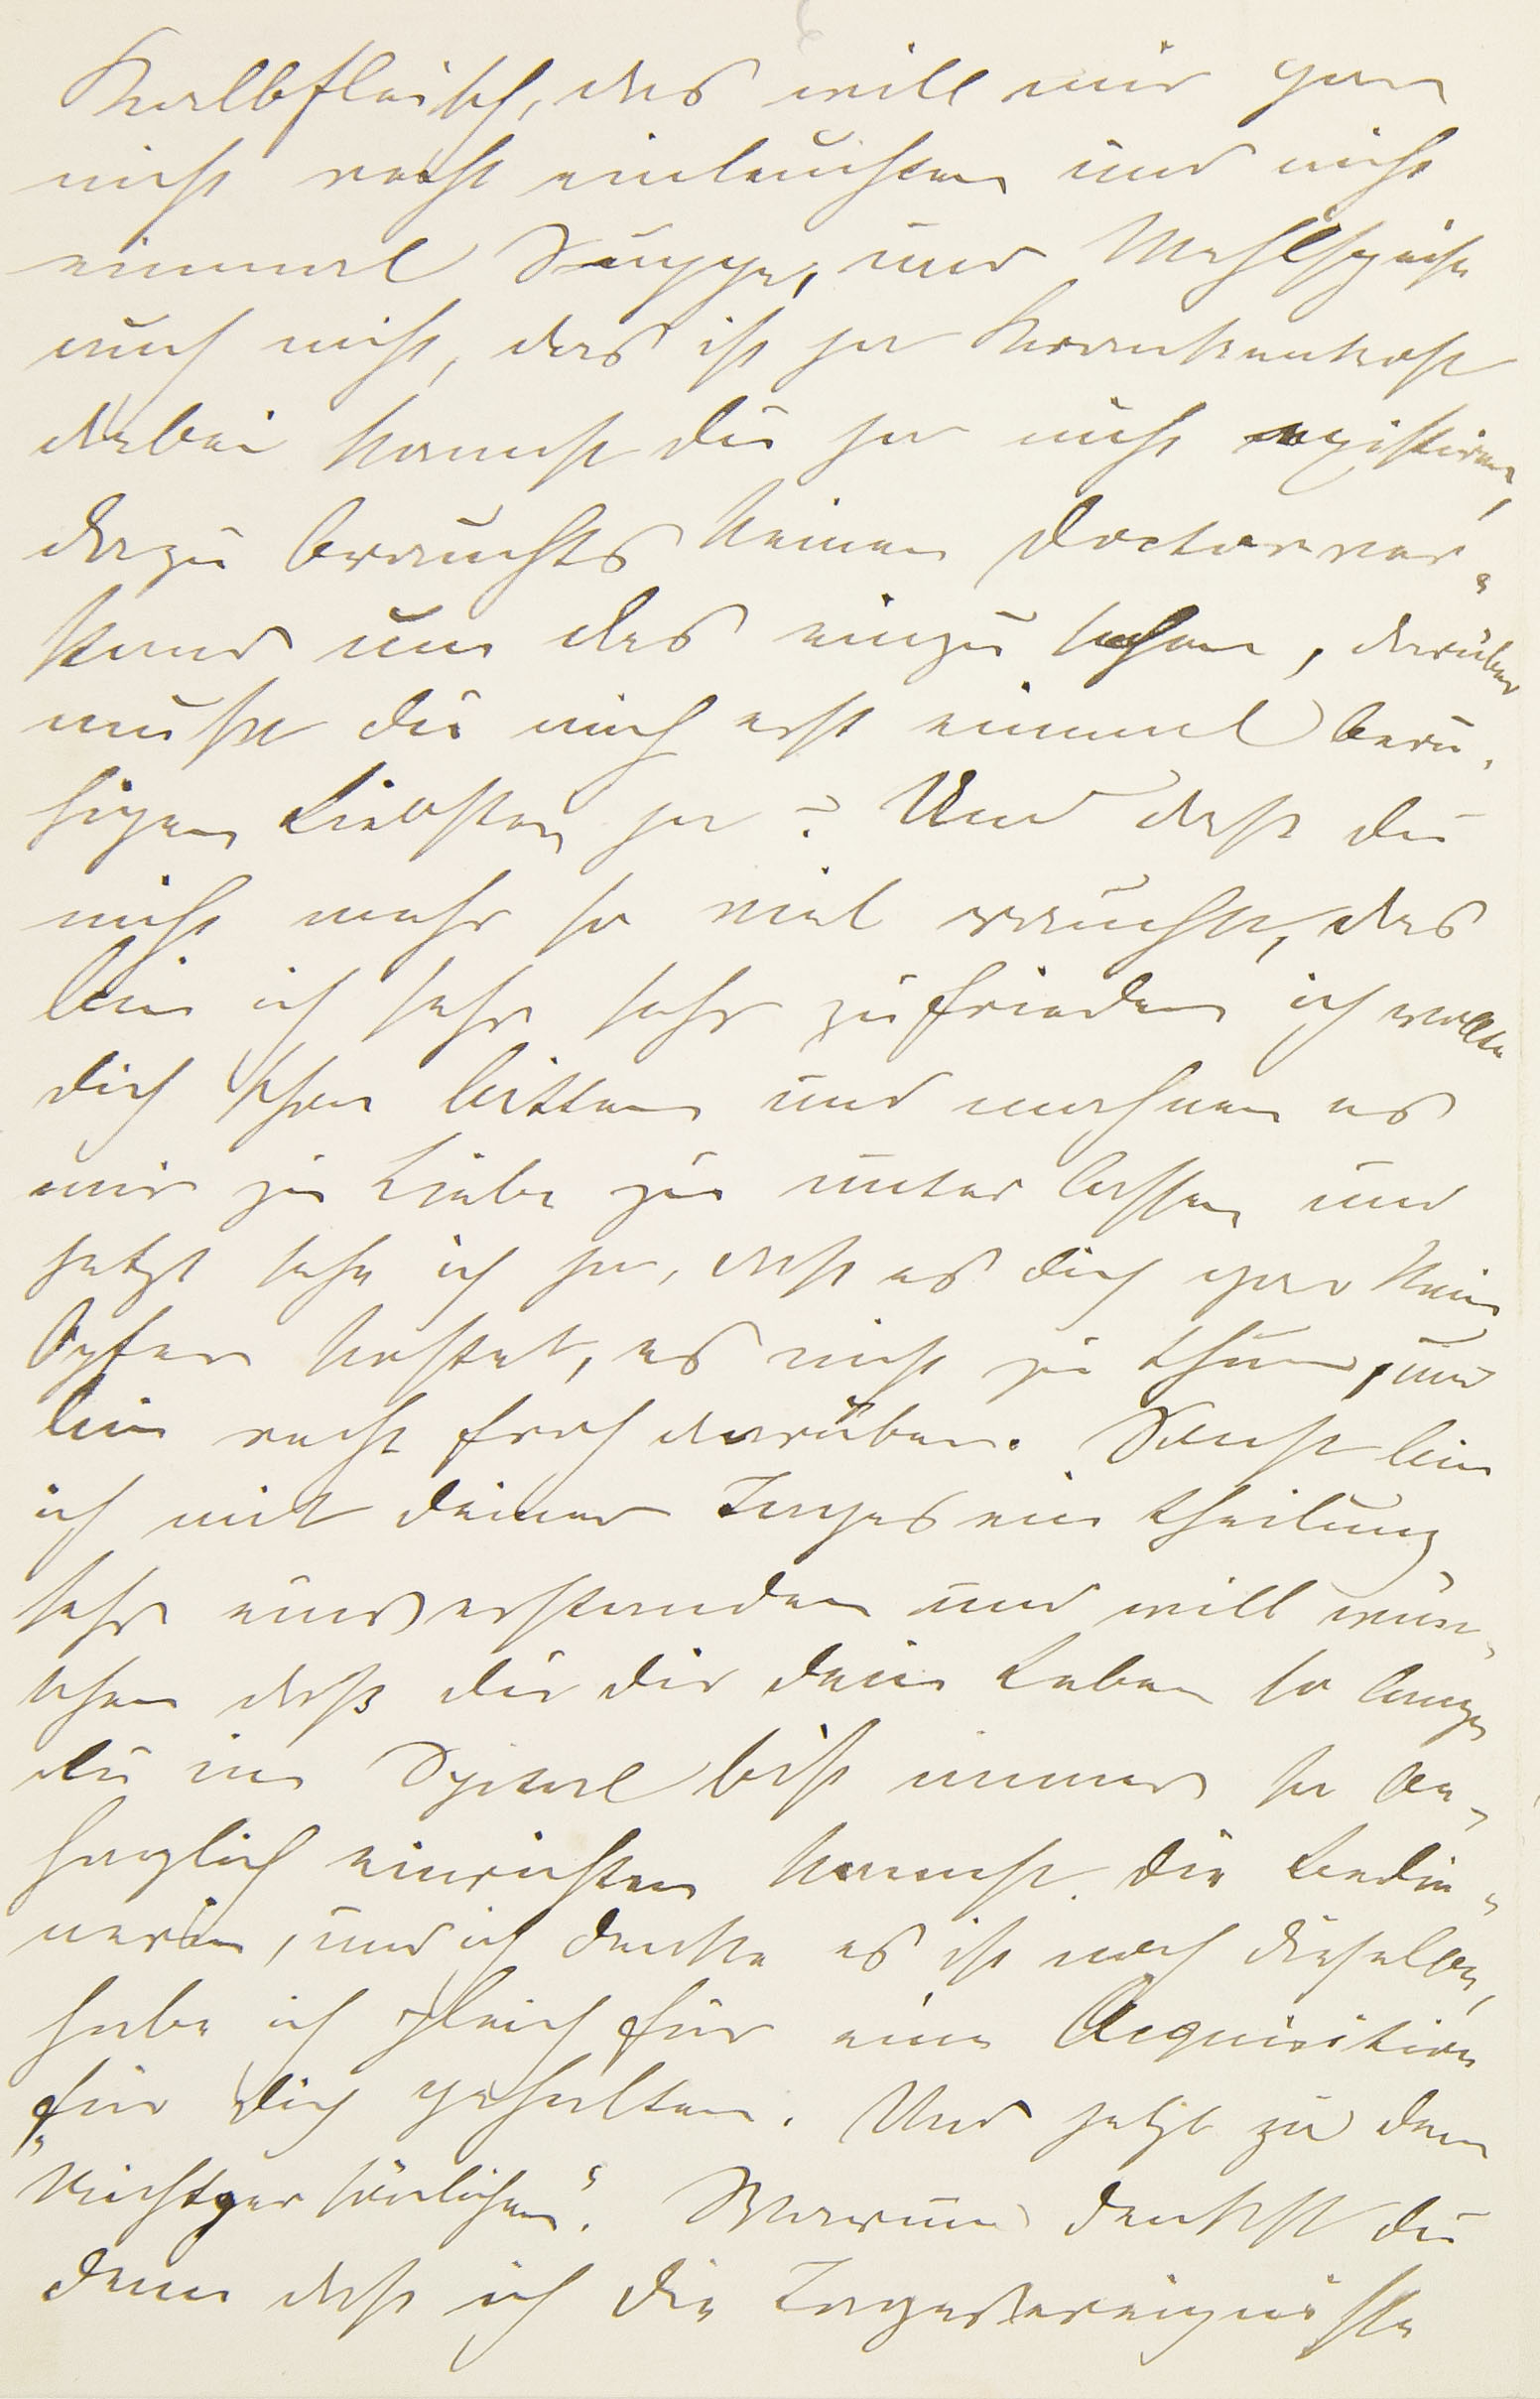 Kalbfleisch, das will mir gar
nicht recht einleuchten und nicht
einmal Suppe, und Mehlspeise
auch nicht, das ist ja Krankenkost
dabei kannst du ja nicht existiren,
dazu brauchts keinen Doctorver-
stand um das einzu sehen, darüber
mußt du mich erst einmal beru-
higen Liebster ja? Und daß du
nicht mehr so viel rauchst, das
bin ich sehr sehr zufrieden ich wollte
dich schon bitten und mahnen es
mir zu Liebe zu unter lassen und
jetzt sehe ich ja, daß es dich gar kein
Opfer kostet, es nicht zu thun, und
bin recht froh darüber. Sonst bin
ich mit deiner Tages ein theilung
sehr einverstanden und will wün-
schen daß du dir dein Leben so lange
du im Spital bist immer so be-
haglich einrichten kannst. Die Bedie-
nerin, und ich denke es ist noch dieselbe,
habe ich gleich für eine Acquisition
für dich gehalten. Und jetzt zu dem
„Nichtpersönlichen". Warum denkst du
denn daß ich die Tagesereignisse